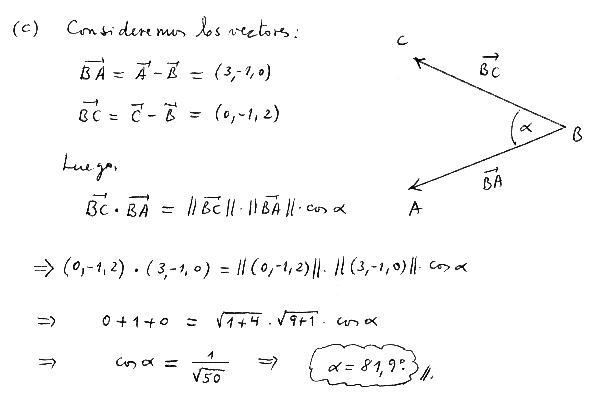 (c) Consideremos los vectores:
$\overrightarrow{BA} = \vec{A} - \vec{B} = (3,-1,0)$
$\overrightarrow{BC} = \vec{C} - \vec{B} = (0,-1,2)$
Luego,
$\overrightarrow{BC} \cdot \overrightarrow{BA} = \|\overrightarrow{BC}\| \cdot \|\overrightarrow{BA}\| \cdot \cos \alpha$
$\Rightarrow (0,-1,2) \cdot (3,-1,0) = \|(0,-1,2)\| \cdot \|(3,-1,0)\| \cdot \cos \alpha$
$\Rightarrow 0+1+0 = \sqrt{1+4} \cdot \sqrt{9+1} \cdot \cos \alpha$
$\Rightarrow \cos \alpha = \frac{1}{\sqrt{50}} \Rightarrow \alpha = 81,9^\circ //.$
C
$\overrightarrow{BC}$
α
B
$\overrightarrow{BA}$
A